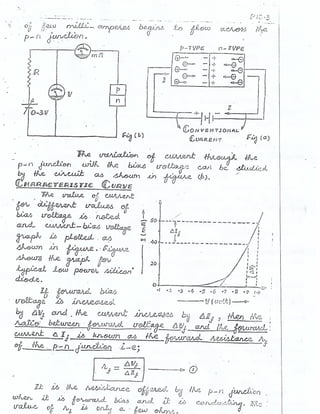 of few milli-amperes begins to flow across the
p-n junction.
P-TYPE n-TYPE
mA
R
V
P
n
0-3V
I
I
Fig (b)
CONVENTIONAL
CURRENT
Fig (a)
The variation of current through the
p-n junction with the bias voltage can be studied
by the circuit as shown in figure (b).
CHARACTERISTIC CURVE
The value of current
for different values of
bias voltage is noted
and current-bias voltage
graph is plotted as
shown in figure. Figure
shows the graph for
typical low power silicon
diode.
I (mA)
60
40
20
ΔIf
ΔVf
.1 .2 .3 .4 .5 .6 .7 .8 .9 1.0
V (volt)
If forward bias
voltage is increased
by ΔVf and the current increases by ΔIf, then the
ratio between forward voltage ΔVf and the forward
current ΔIf is known as the forward resistance rf
of the p-n junction i-e;
rf = ΔVf / ΔIf
It is the resistance offered by the p-n junction
when it is forward bias and it is conducting. The
value of rf is only a few ohms.